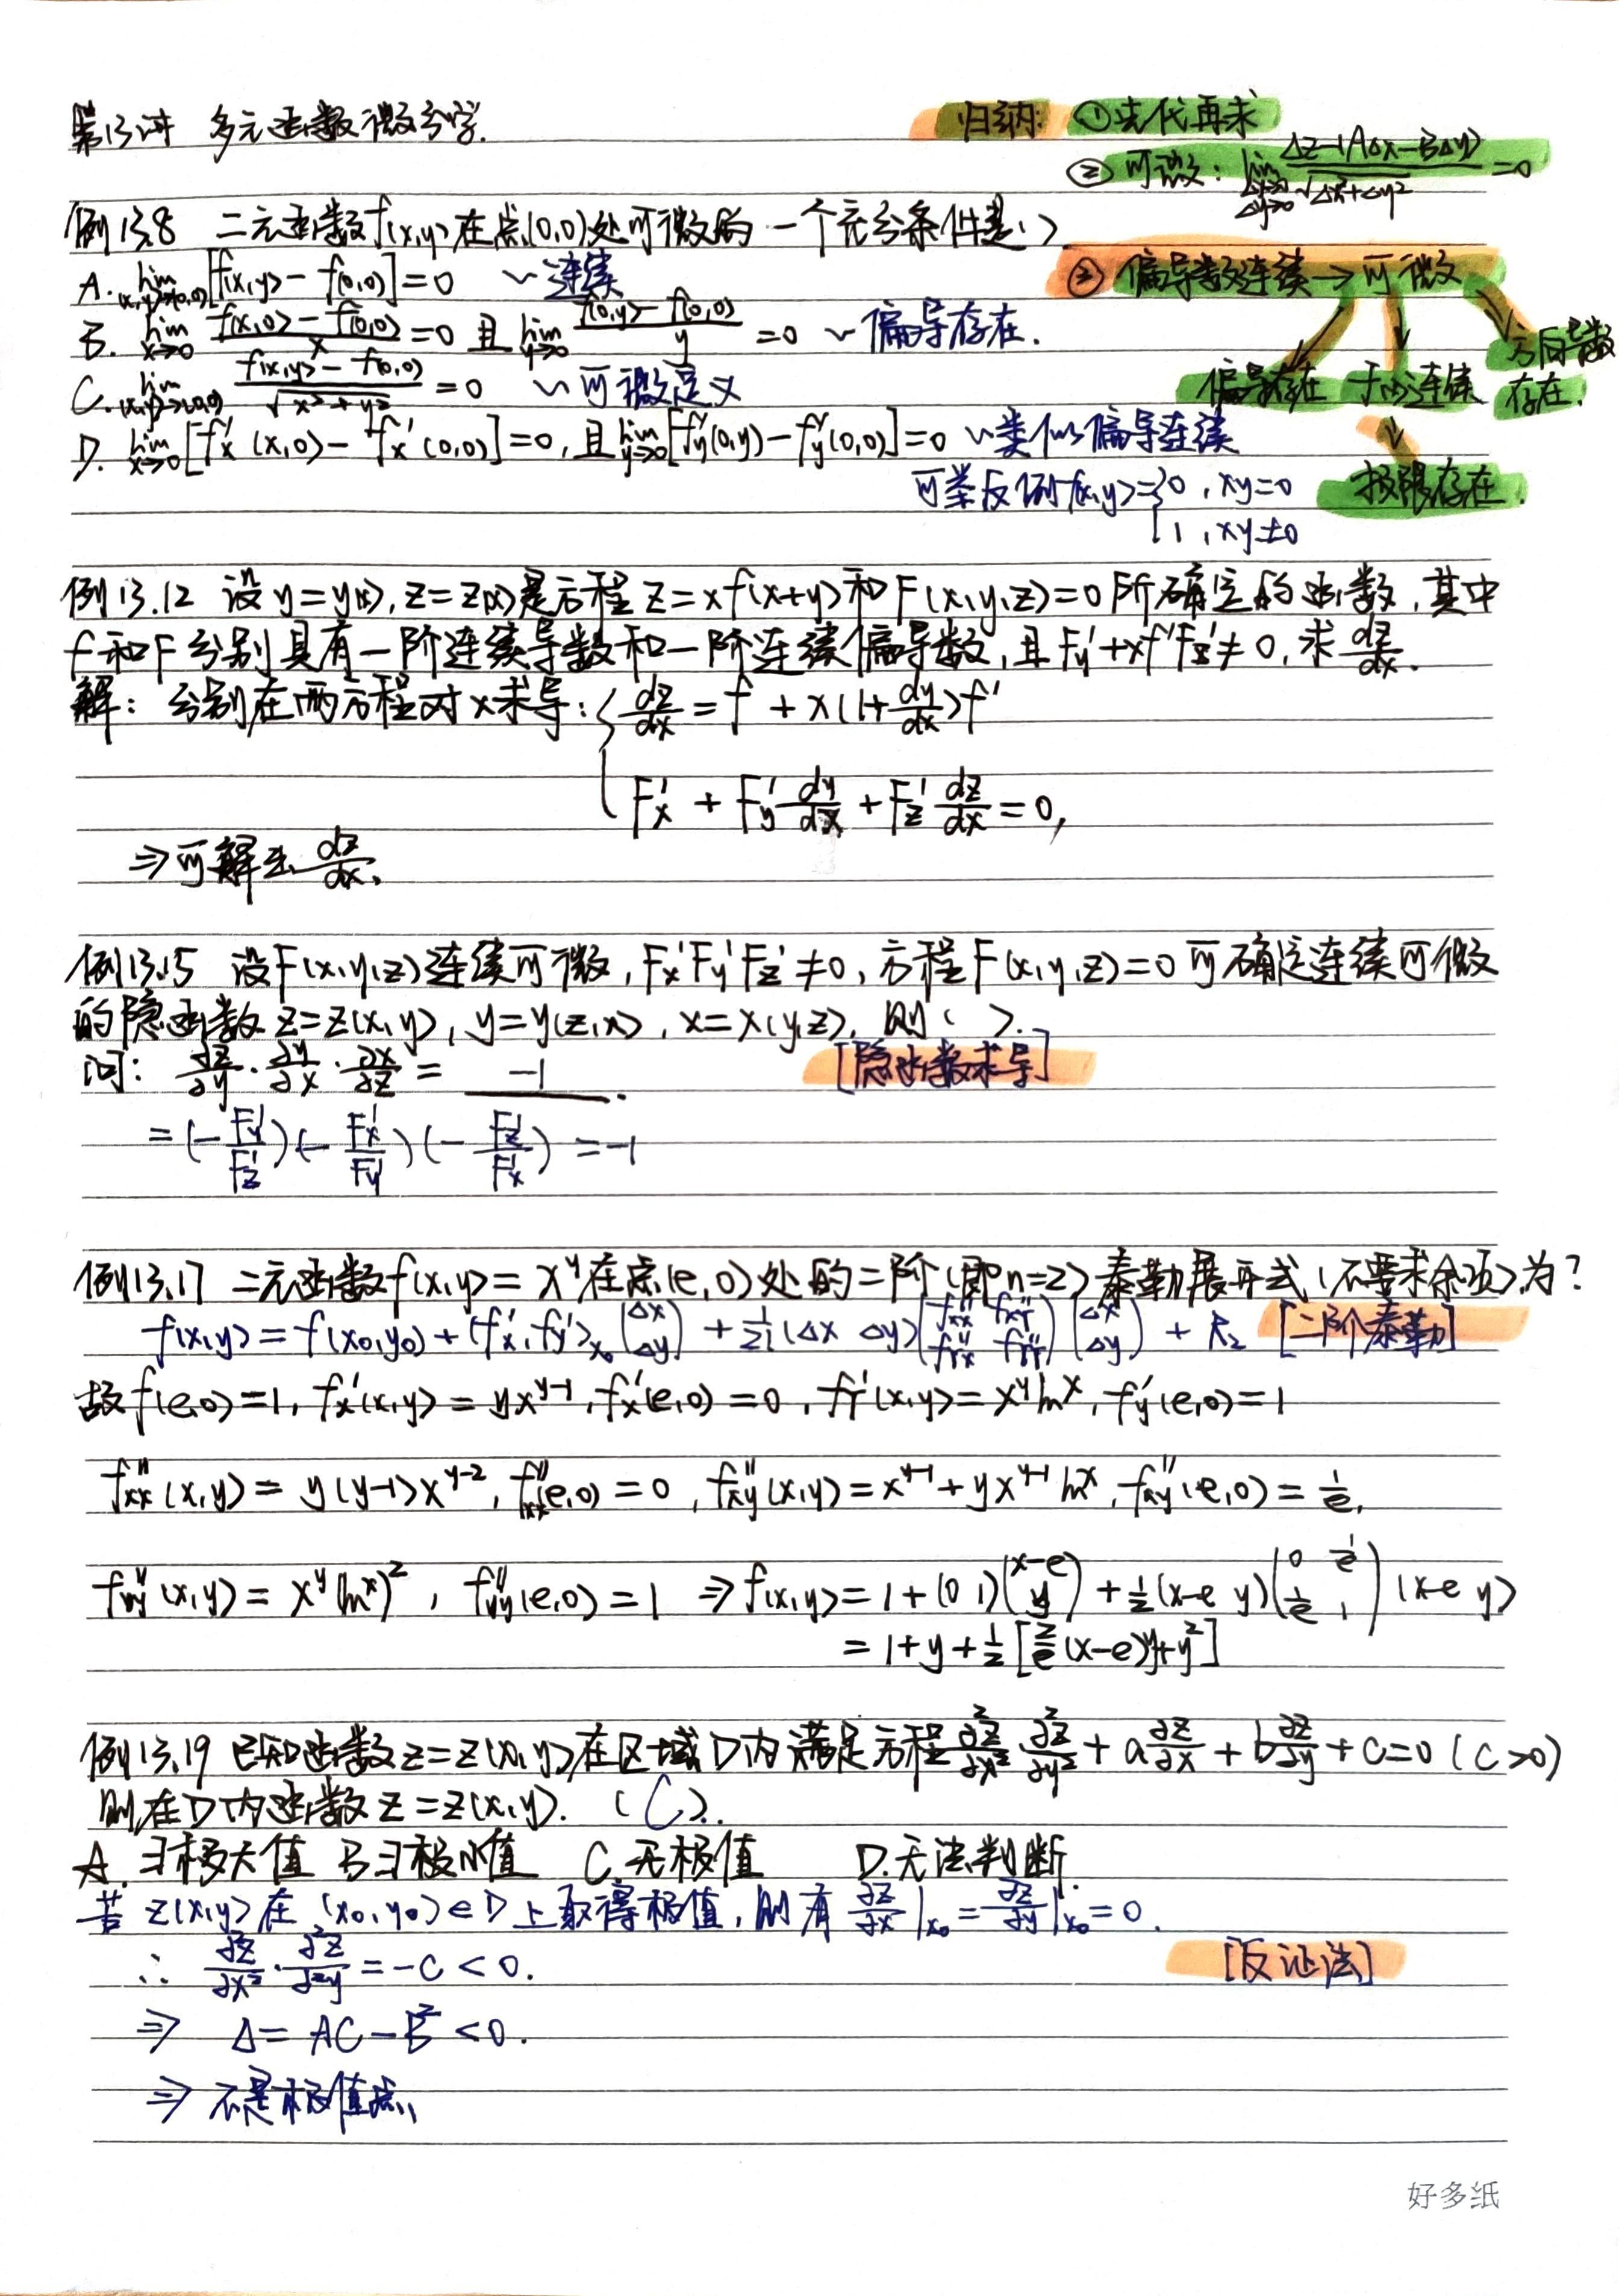 第13讲 多元函数微分学.
归纳: ①先代再求
②可微: lim_{Δx→0 Δy→0} (Δz-(AΔx-BΔy))/√(Δx²+Δy²) = 0
例13.8 二元函数f(x,y)在点(0,0)处可微的一个充分条件是( )
A. lim_{(x,y)→(0,0)} [f(x,y)-f(0,0)]=0 ~连续
B. lim_{x→0} (f(x,0)-f(0,0))/x =0 且 lim_{y→0} (f(0,y)-f(0,0))/y =0 ~偏导存在.
C. lim_{(x,y)→(0,0)} (f(x,y)-f(0,0))/√(x²+y²) =0 ~可微定义
D. lim_{x→0} [f'x(x,0)-f'x(0,0)]=0, 且 lim_{y→0} [f'y(0,y)-f'y(0,0)]=0 ~类似偏导连续
可举反例f(x,y)={0, xy=0
1, xy≠0
③偏导数连续→可微
偏导存在 连续 方向导数存在.
极限存在.
例13.12 设y=y(x), z=z(x)是方程z=xf(x+y)和F(x,y,z)=0所确定的函数, 其中
f和F分别具有一阶连续导数和一阶连续偏导数, 且F'y+xf'F'z≠0, 求dz/dx.
解: 分别在两方程对x求导: { dz/dx = f + x(1+dy/dx)f'
F'x + F'y dy/dx + F'z dz/dx = 0,
⇒可解出 dz/dx.
例13.15 设F(x,y,z)连续可微, F'xF'yF'z≠0, 方程F(x,y,z)=0可确定连续可微
的隐函数z=z(x,y), y=y(z,x), x=x(y,z), 则( ).
问: ∂z/∂y·∂y/∂x·∂x/∂z = -1. [隐函数求导]
=(-F'y/F'z)(-F'x/F'y)(-F'z/F'x) =-1
例13.17 二元函数f(x,y)=x^y在点(e,0)处的二阶(即n=2)泰勒展开式(不要求余项)为?
f(x,y)=f(x₀,y₀)+(f'x, f'y)_{x₀} (Δx Δy) + 1/2! (Δx Δy) (f''xx f''xy f''yx f''yy) (Δx Δy) + R₂ [二阶泰勒]
故f(e,0)=1, f'x(x,y)=yx^{y-1}, f'x(e,0)=0, f'y(x,y)=x^y lnx, f'y(e,0)=1
f''xx(x,y)=y(y-1)x^{y-2}, f''xx(e,0)=0, f''xy(x,y)=x^{y-1}+yx^{y-1}lnx, f''xy(e,0)=1/e.
f''yy(x,y)=x^y(lnx)², f''yy(e,0)=1 ⇒ f(x,y)=1+(0 1)(x-e y)+1/2(x-e y)(0 1/e 1/e 1)(x-e y)
=1+y+1/2[2/e(x-e)y+y²]
例13.19 已知函数z=z(x,y)在区域D内满足方程 ∂²z/∂x² ∂²z/∂y² + a∂z/∂x + b∂z/∂y + C=0 (C>0)
则在D内函数z=z(x,y). (C).
A. ∃极大值 B. ∃极小值 C. 无极值 D. 无法判断.
若z(x,y)在(x₀,y₀)∈D上取得极值, 则有 ∂z/∂x|x₀=∂z/∂y|x₀=0.
∴ ∂²z/∂x²·∂²z/∂²y=-C<0. [反证法]
⇒ Δ=AC-B²<0.
⇒ 不是极值点
好多纸